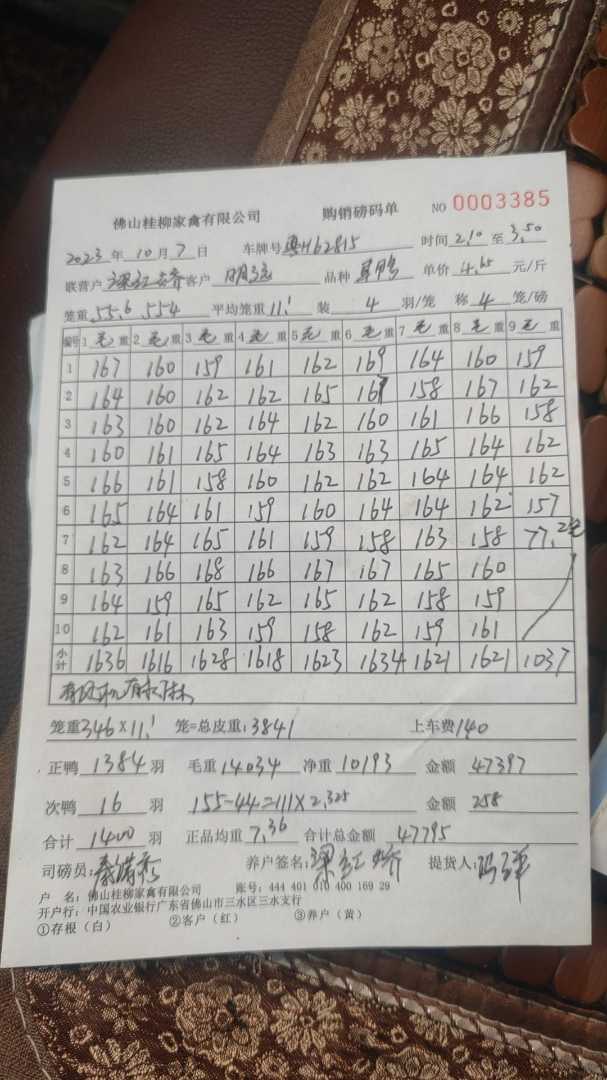 佛山桂柳家禽有限公司 购销磅码单 NO 0003385
2023 年 10 月 7 日 车牌号 粤H62815 时间 2.10 至 3.50
联营户 梁红娇 客户 品种 单价 4.65 元/斤
笼重 55.6 554 平均笼重 11.1 装 4 羽/笼 称 4 笼/磅
编号 1 毛 重 2 毛 重 3 毛 重 4 毛 重 5 毛 重 6 毛 重 7 毛 重 8 毛 重 9 毛 重
1 167 160 159 161 162 169 164 160 159
2 164 160 162 162 165 167 158 167 162
3 163 160 162 164 162 160 161 166 158
4 160 161 165 164 163 163 165 164 162
5 166 161 158 160 162 162 164 164 162
6 165 164 161 159 160 164 164 162 157
7 162 164 165 161 159 158 163 158 77.2毛
8 163 166 168 166 167 167 165 160
9 164 159 165 162 165 162 158 159
10 162 161 163 159 158 162 159 161
小计 1636 1616 1628 1618 1623 1634 1621 1621 1037
笼重 346×11.1 笼=总皮重: 3841 上车费 140
正鸭 1384 羽 毛重 14034 净重 10193 金额 47397
次鸭 16 羽 155-44=111×2.325 金额 258
合计 1400 羽 正品均重 7.36 合计总金额 47795
司磅员: 养户签名: 梁红娇 提货人:
户 名: 佛山桂柳家禽有限公司 账号: 444 401 010 400 169 29
开户行: 中国农业银行广东省佛山市三水区三水支行
①存根(白) ②客户(红) ③养户(黄)